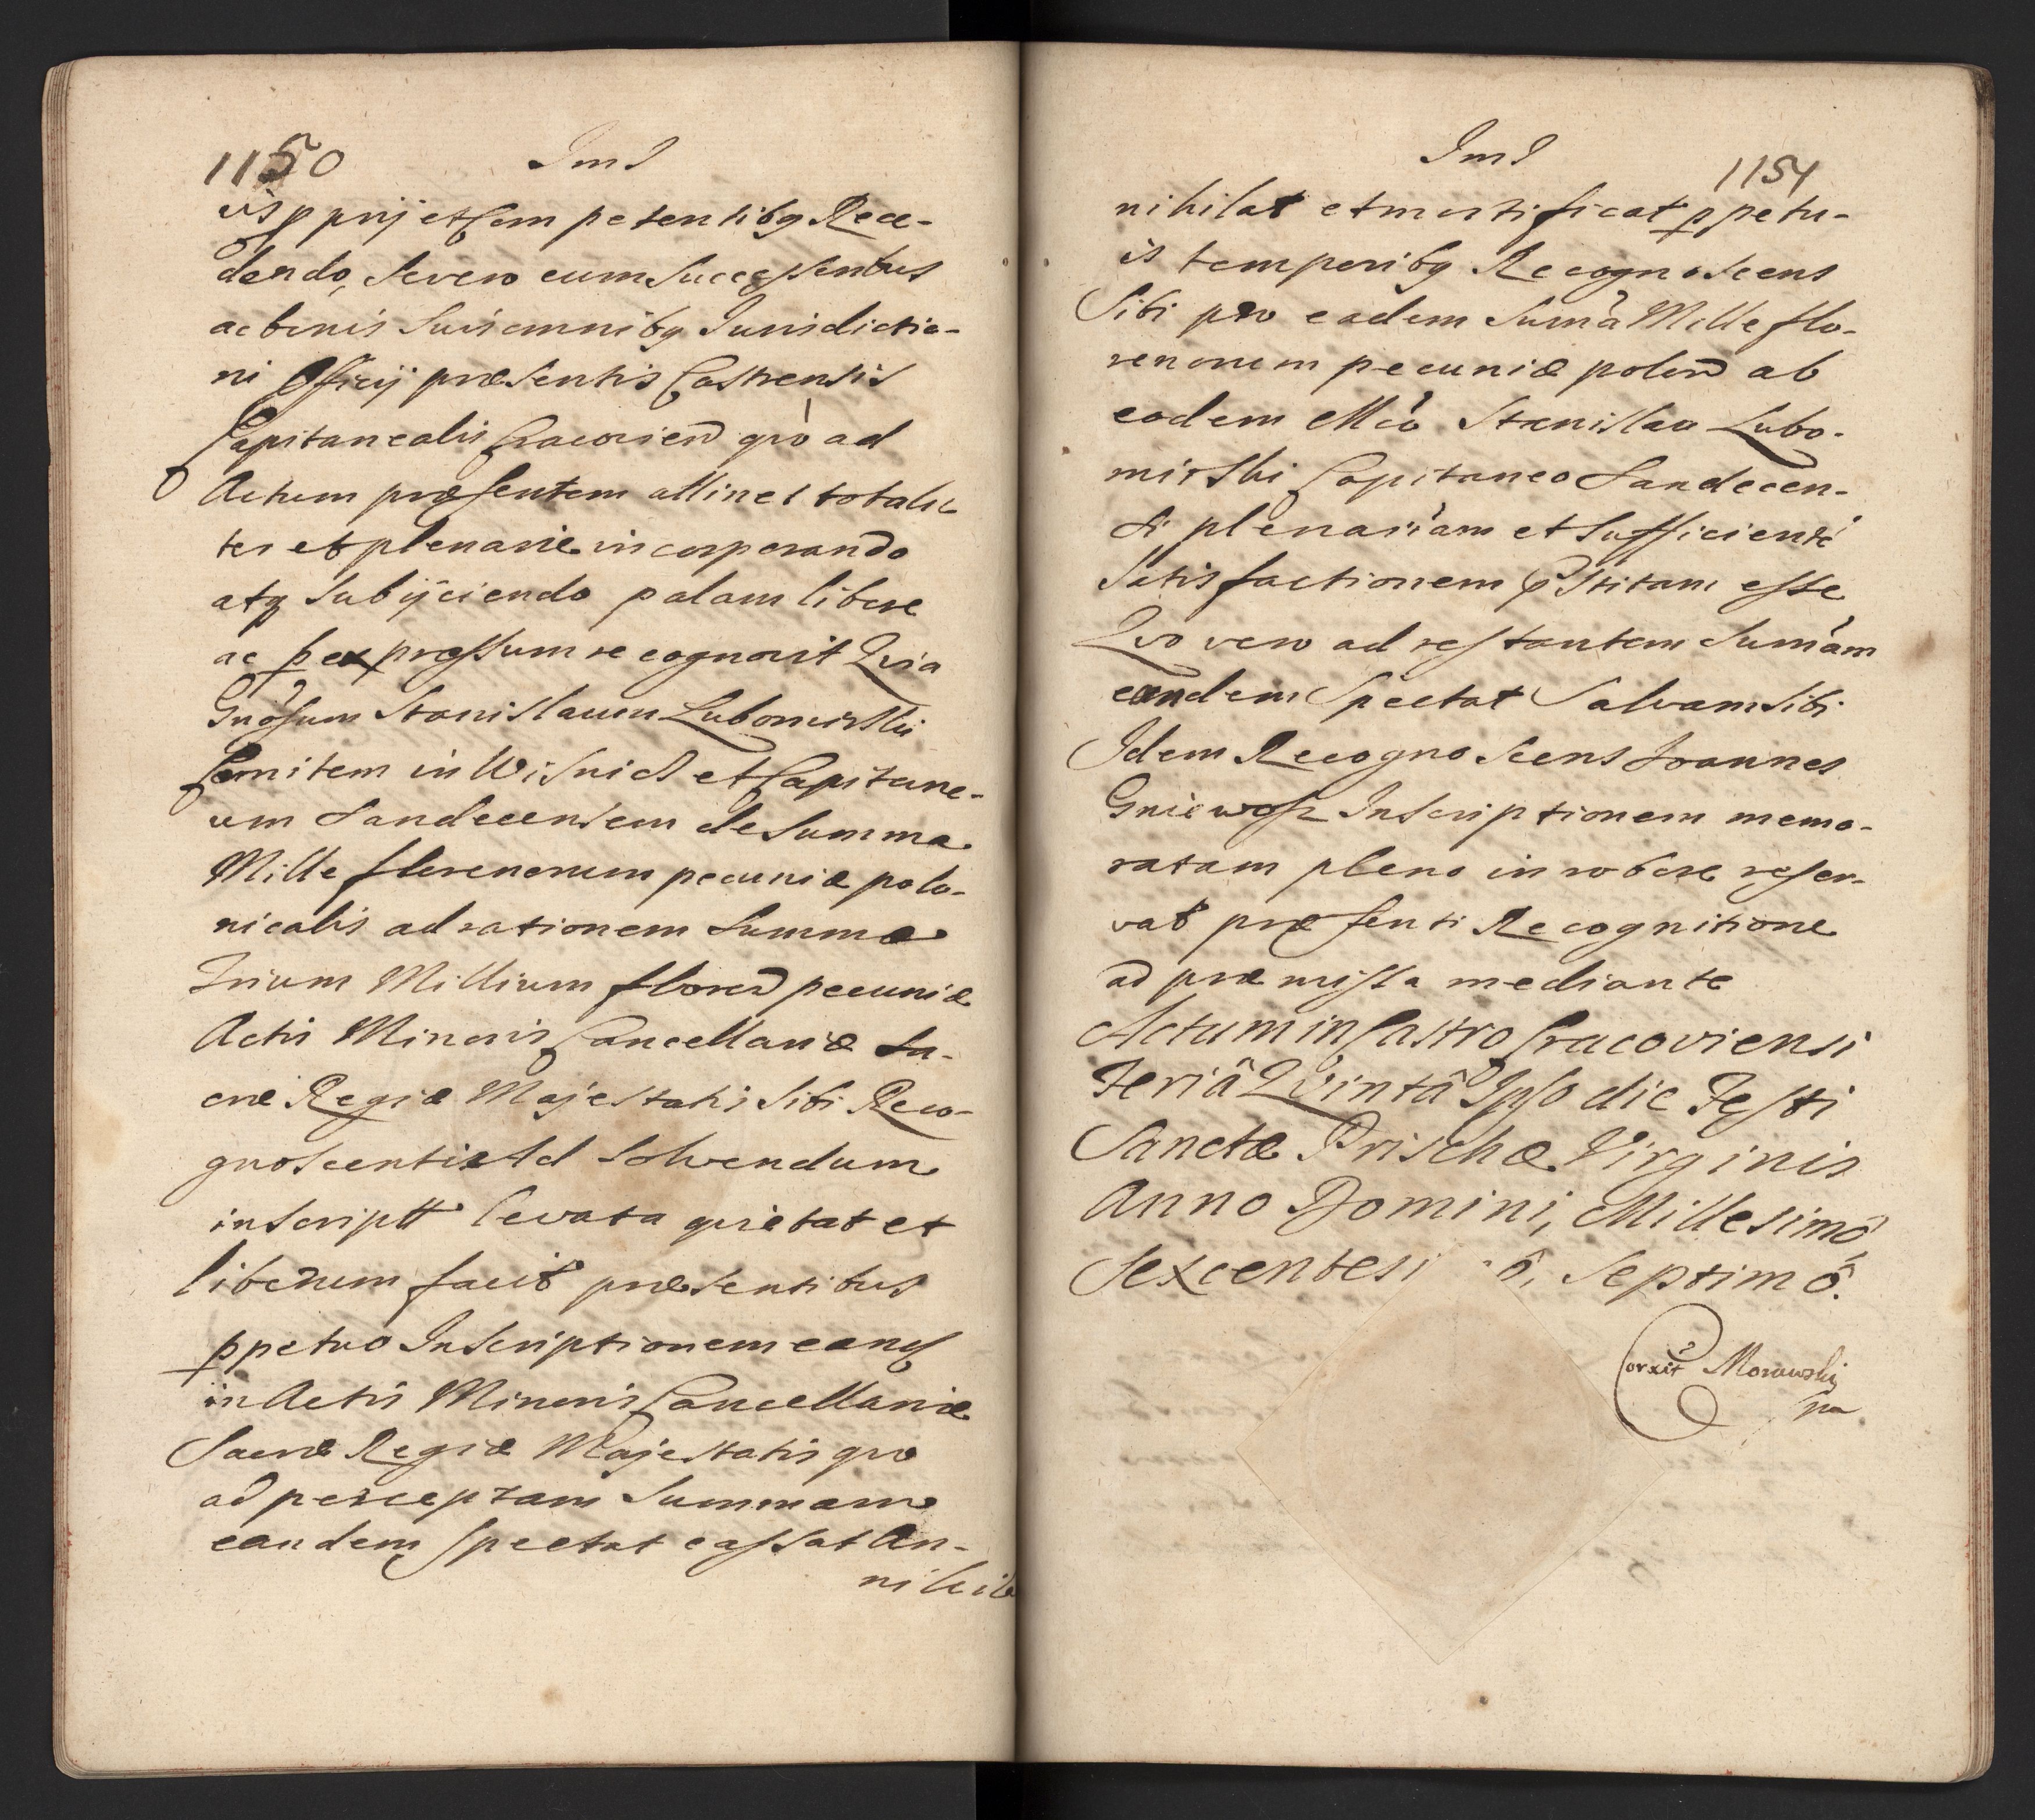 1150
Ims
iis pprij et Competentibq Rece-
dendo, Se vero cum Successoribus
ac bonis Suis omnibq Iurisdictio-
ni Officij præsentis Castrensis
Capitanealis Cracovien quo ad
Actum præsentem attinet totali-
ter et plenarie incorporando
atq Subijciendo palam libere
ac p expressum recognovit Quia
Gnosum Stanislaum Lubomirski
Comitem in Wisnicz et Capitane-
um Sandecensem de Summa
Mille florenorum pecuniæ polo-
nicalis ad rationem Summæ
Trium Millium floren pecuniæ
Actis Minoris Cancellariæ Sa-
cræ Regiæ Majestatis Sibi Reco-
gnoscenti Ad Solvendum
inscriptt levata quietat et
liberum facit præsentibus
ppetuo Inscriptionem eandq
in Actis Minoris Cancellariæ
Sacræ Regiæ Majestatis quo
ad perceptam Summam
eandem Spectat cassat An-
nihila
Ims
1151
nihilat et mortificat ppetu-
is temporibq Recognoscens
Sibi pro eadem Suma Mille flo-
renorum pecuniæ polon ab
eodem Mco Stanislao Lubo-
mirski Capitaneo Sandecen-
si plenariam et Sufficiente
Satisfactionem pstitam esse
Quo vero ad restantem Sumam
eandem Spectat Salvam Sibi
Idem Recognoscens Ioannes
Gniewosz Inscriptionem memo-
ratam pleno in robore reser-
vat præsenti Recognitione
ad præmissa mediante
Actum in Castro Cracoviensi
Feriâ Quintâ Ipso die Festi
Sanctæ Prischæ Virginis
Anno Domini, Millesimô
Sexcentesi ô, Septimô.
Corxit Morawskij